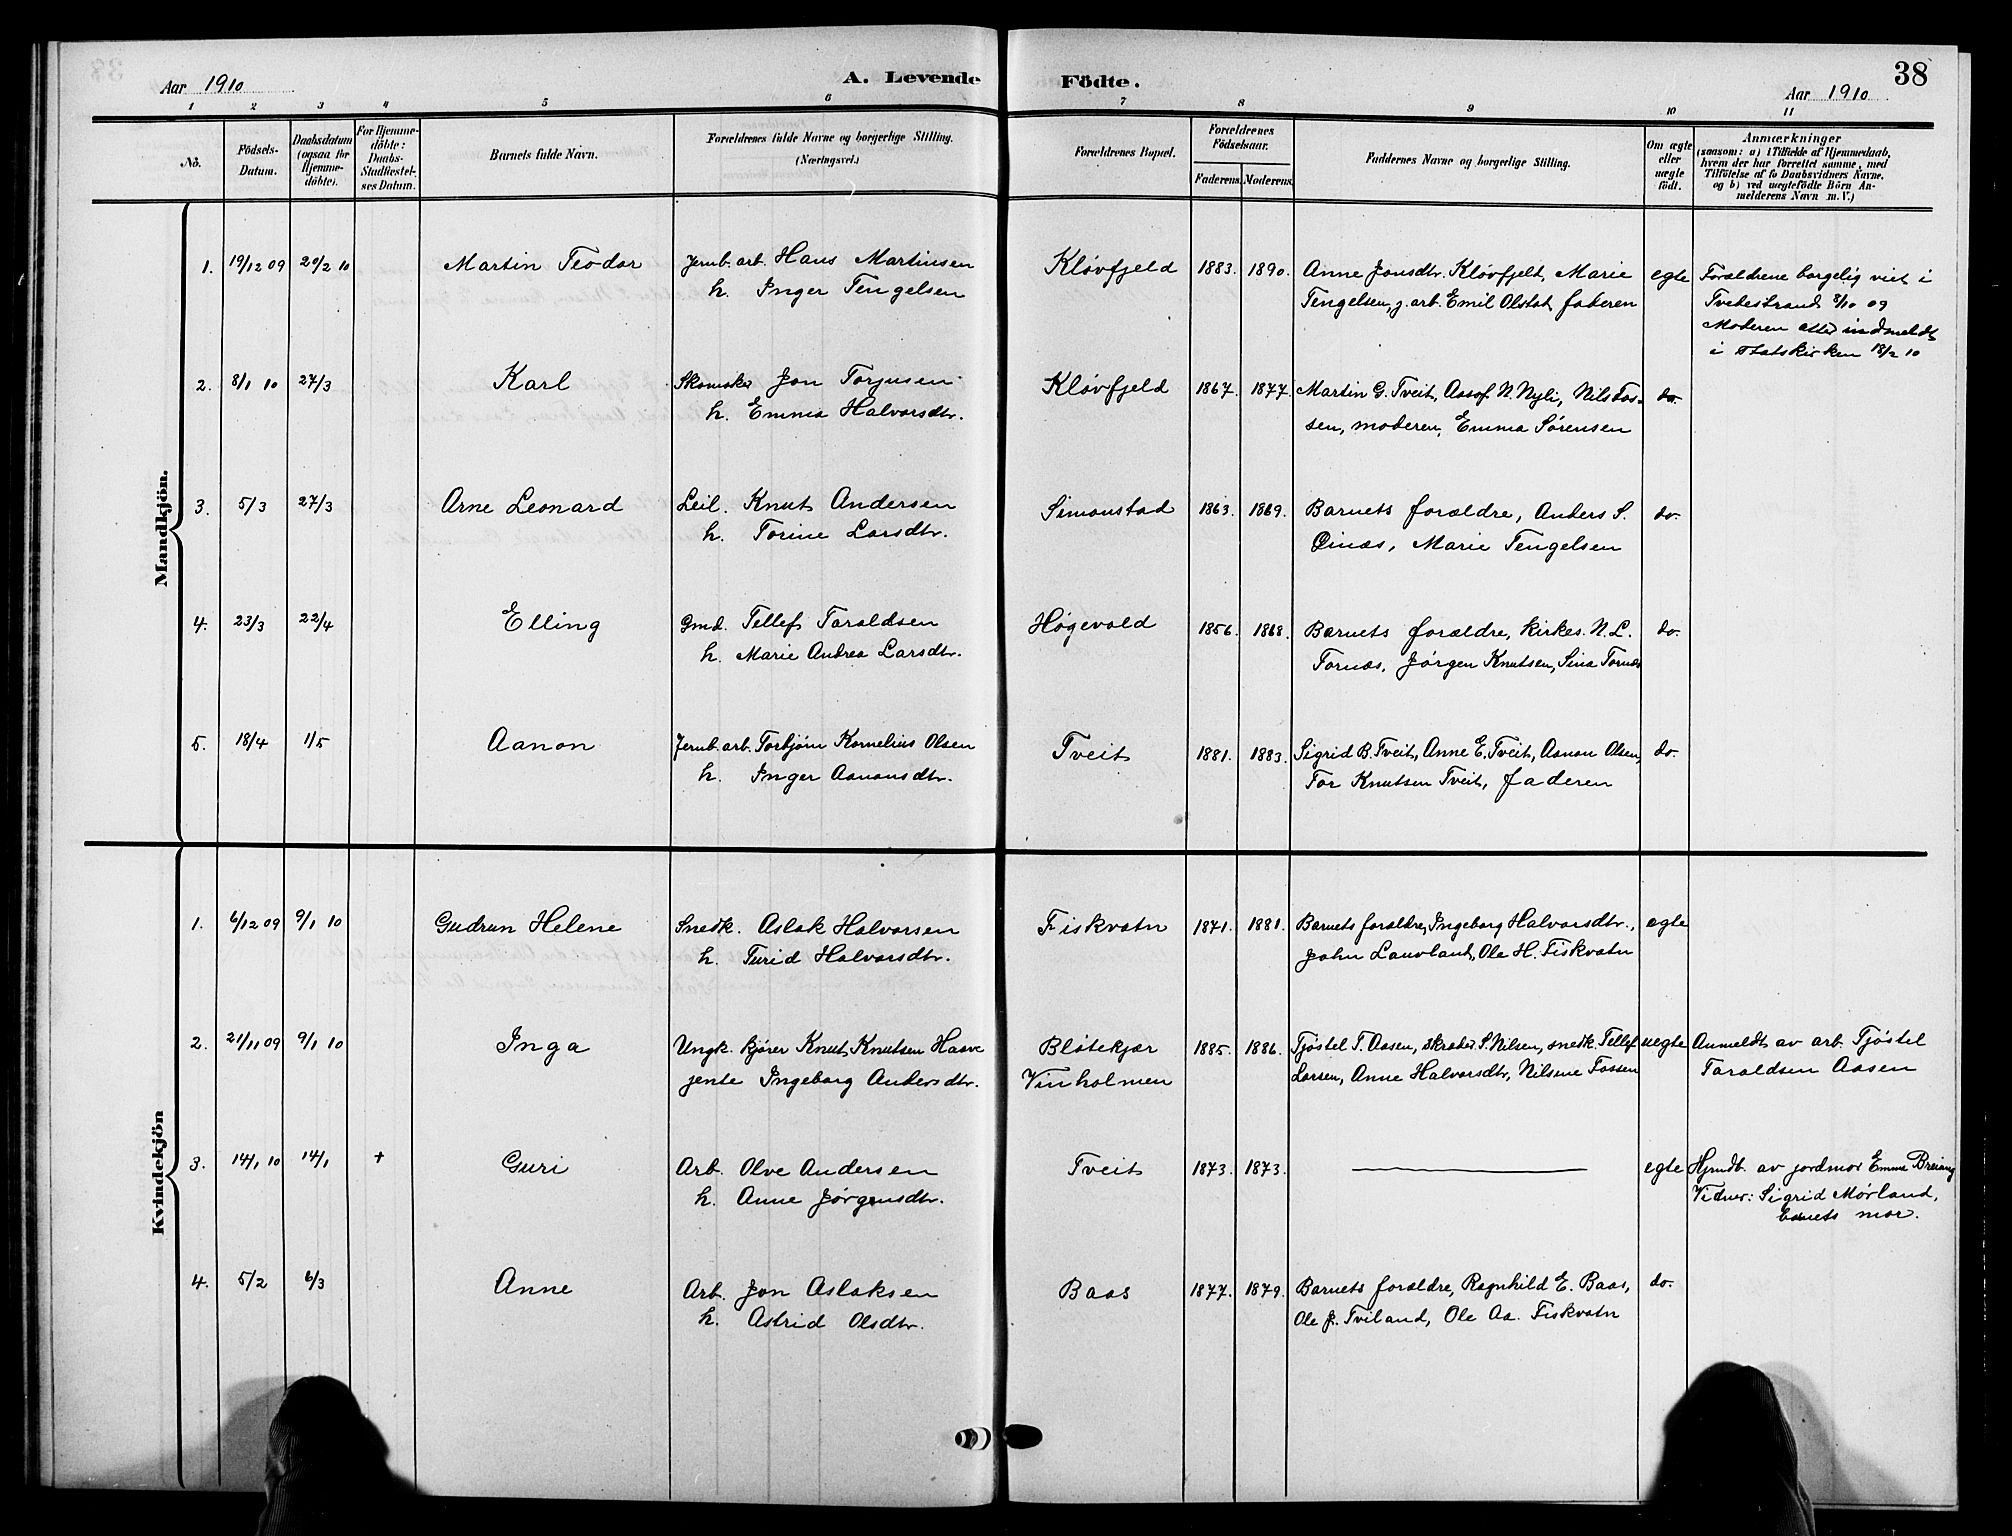 Aar 1910
A. Levende
Födte.
38
Aar 1910
1 2 3 4 5 6 7 8 9 10 11
No.
Födsels-
Datum.
Daabsdatum
(ogsaa for
Hjemme-
döbte).
For Hjemme-
döbte:
Daabs-
Stadfæstel-
ses Datum.
Barnets fulde Navn.
Forældrenes fulde Navne og borgerlige Stilling.
(Næringsvei.)
Forældrenes Bopæl.
Forældrenes
Födselsaar.
Faderens. Moderens.
Faddernes Navne og borgerlige Stilling.
Om ægte
eller
uægte
födt.
Anmærkninger
(saasom: a) i Tilfælde af Hjemmedaab,
hvem der har forrettet samme, med
Tilföielse af to Daabsvidners Navne,
og b) ved uægtefödte Börn An-
melderens Navn m. V.)
Mandkjön.
1. 19/12 09 20/2 10 Martin Teodor Jernb. arb. Hans Martinsen Kløvfjeld 1883. 1890. Anne Jonsdtr. Kløvfjelt, Marie egte Forældrene borgelig viet i
h. Inger Tengelsen Tengelsen, j. arb. Emil Olstat, faderen Tvedestrand 8/10 09
Moderen atter indmeldt
i Statskirken 18/2 10
2. 8/1 10 27/3 Karl Skomaker Jon Torjusen Kløvfjeld 1867. 1877. Martin G. Tveit, Aasof N. Nyli, Nils Fos- do.
h. Emma Halvorsdtr. sen, moderen, Emma Sørensen
3. 5/3 27/3 Arne Leonard Leil. Knut Andersen Simonstad 1863. 1869. Barnets forældre, Anders S. do.
h. Torine Larsdtr. Øinæs, Marie Tengelsen
4. 23/3 22/4 Elling Gmd. Tellef Taraldsen Høgevold 1856. 1868. Barnets forældre, kirkes. N. L. do.
h. Marie Andrea Larsdtr. Tornæs, Jørgen Knutsen, Sina Tornæs
5. 18/4 1/5 Aanon Jernb. arb. Torbjørn Kornelius Olsen Tveit 1881. 1883. Sigrid B. Tveit, Anne E. Tveit, Aanon Olsen, do.
h. Inger Aanonsdtr. Tor Knutsen Tveit, faderen
Kvindekjön
1. 6/12 09 9/1 10 Gudrun Helene Snedk. Aslak Halvorsen Fiskvatn 1871. 1881. Barnets forældre, Ingeborg Halvorsdtr., egte
h. Turid Halvorsdtr. John Lauvland, Ole H. Fiskvatn
2. 21/11 09 9/1 10 Inga Ungk. kjører Knut Knutsen Haave Bløtekjær 1885. 1886. Tjøstel T. Aasen, skræder S. Nilsen, snedk. Tellef uegte Anmeldt av arb. Tjøstel
jente Ingeborg Andersdtr. Vinholmen Larsen, Anne Halvorsdtr, Nilsine Fossen Taraldsen Aasen
3. 14/1 10 14/1 + Guri Arb. Olve Andersen Tveit 1873. 1873. egte Hjmdb. av jordmor Emma Breiung
h. Anne Jørgensdtr. Vidner: Sigrid Mørland,
barnets mor.
4. 5/2 6/3 Anne Arb. Jon Aslaksen Baas 1877. 1879. Barnets forældre, Ragnhild E. Baas, do.
h. Astrid Olsdtr. Ole J. Tviland, Ole Aa. Fiskvatn